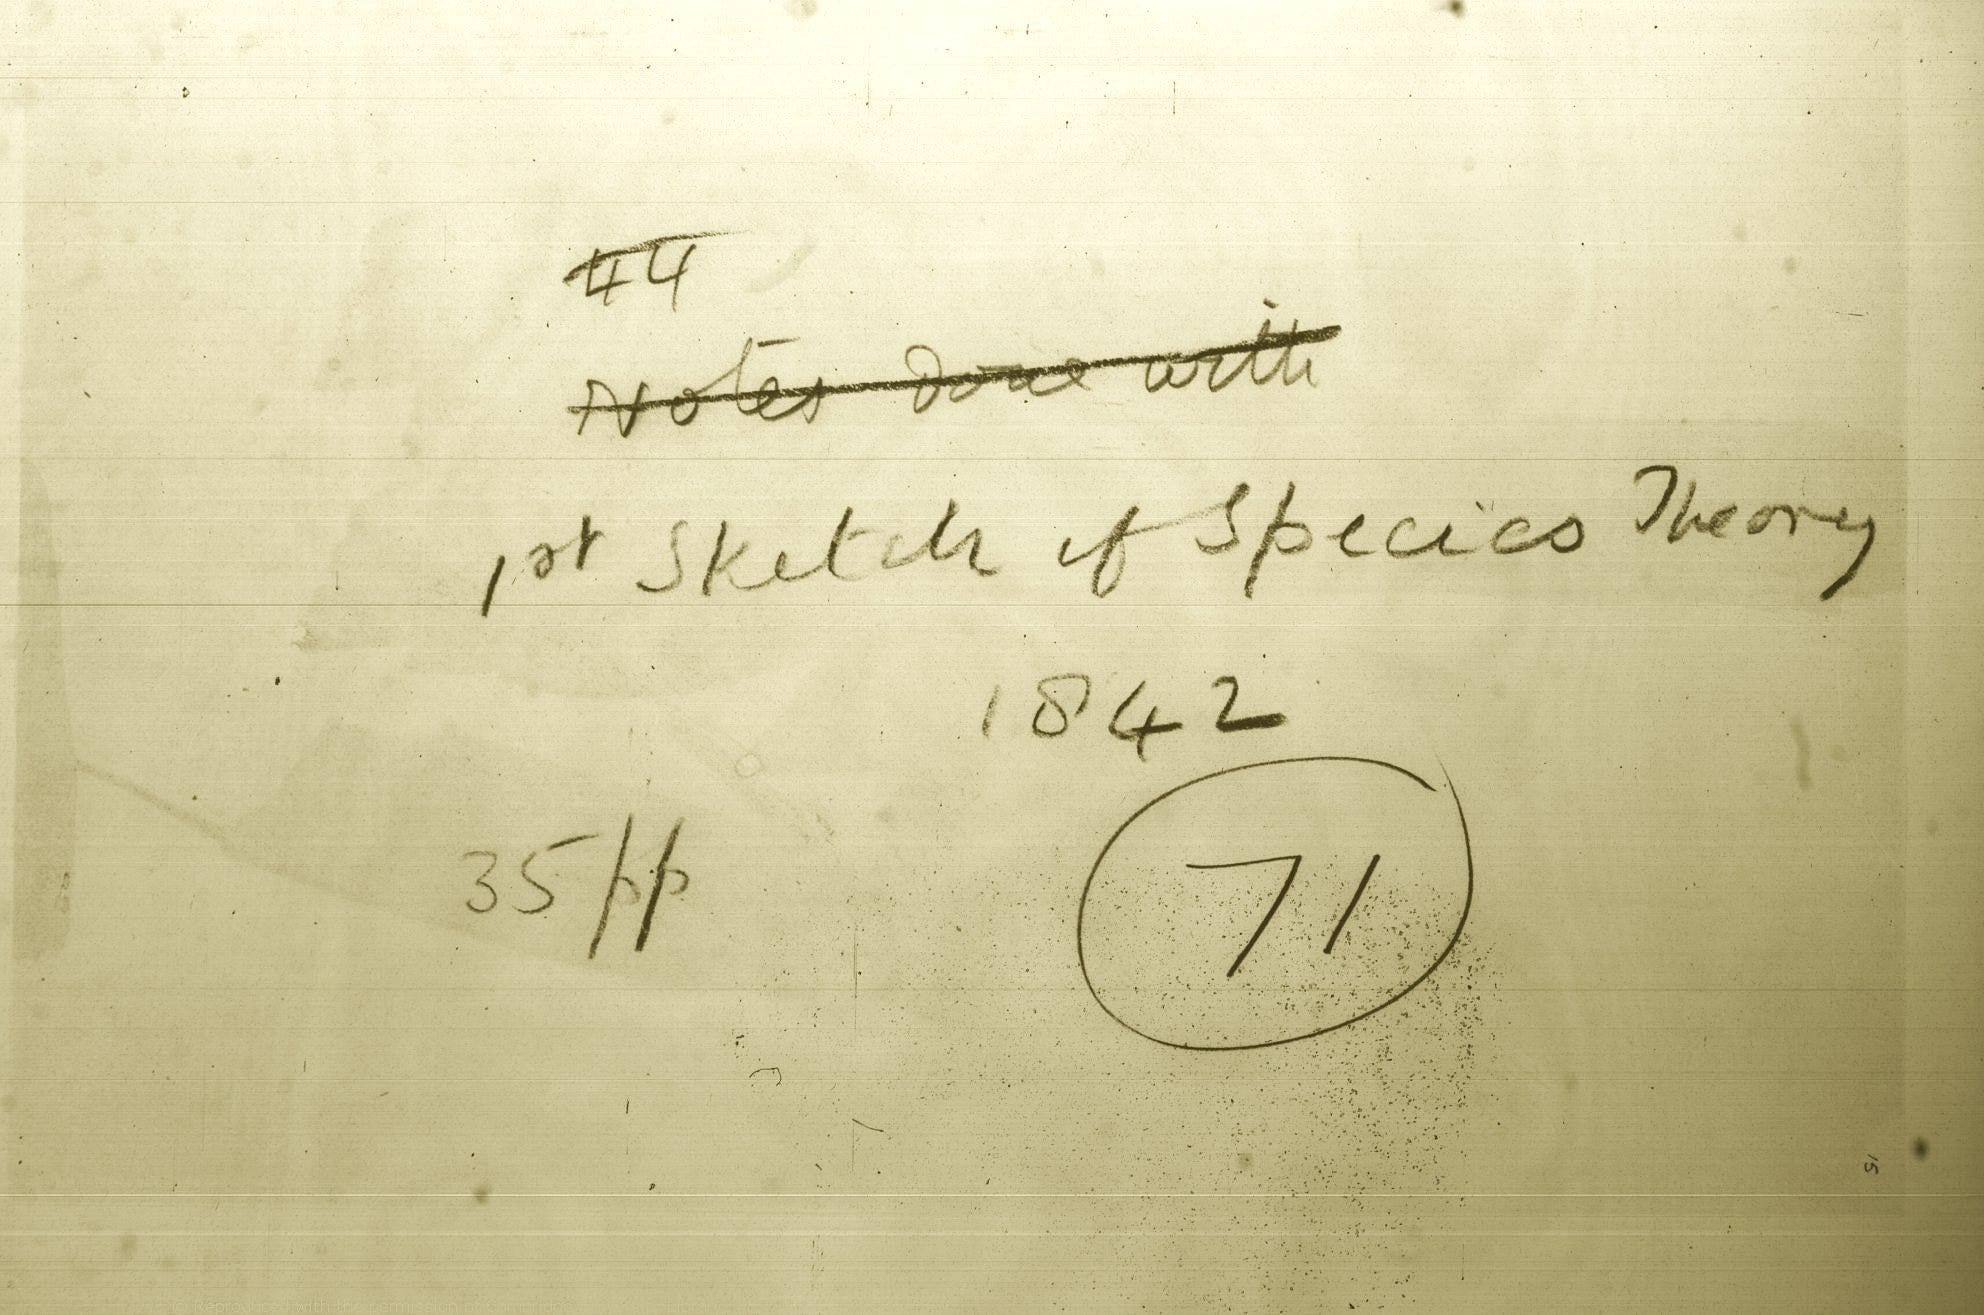 44
Notes done with
1st Sketch of Species Theory
1842
35 pp
71
15